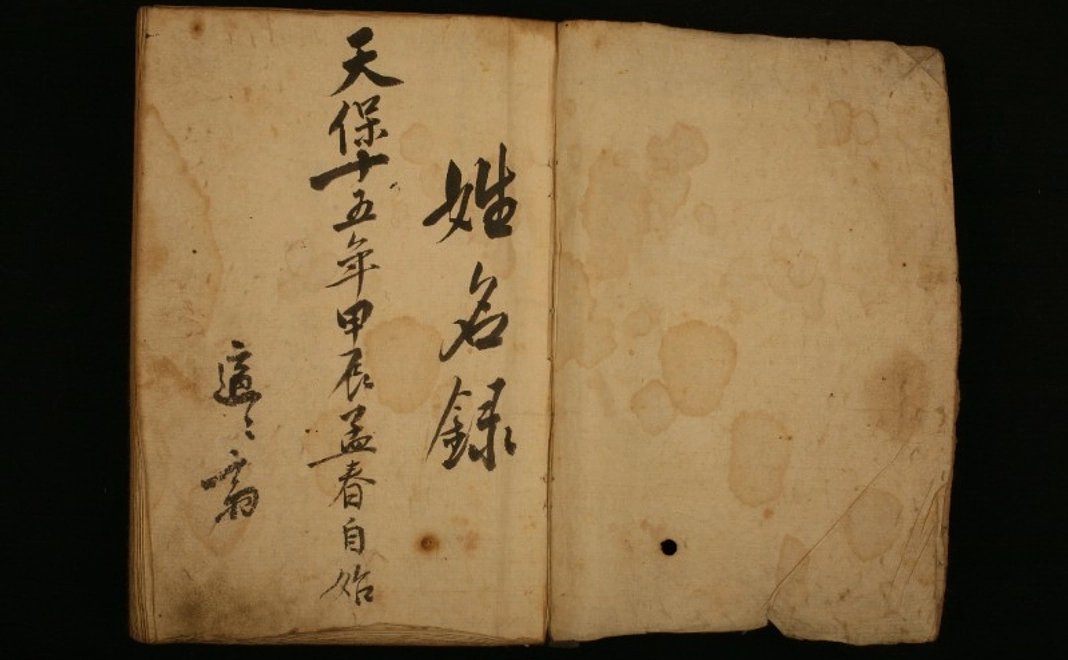 姓名録
天保十五年甲辰孟春自始
適〻斎